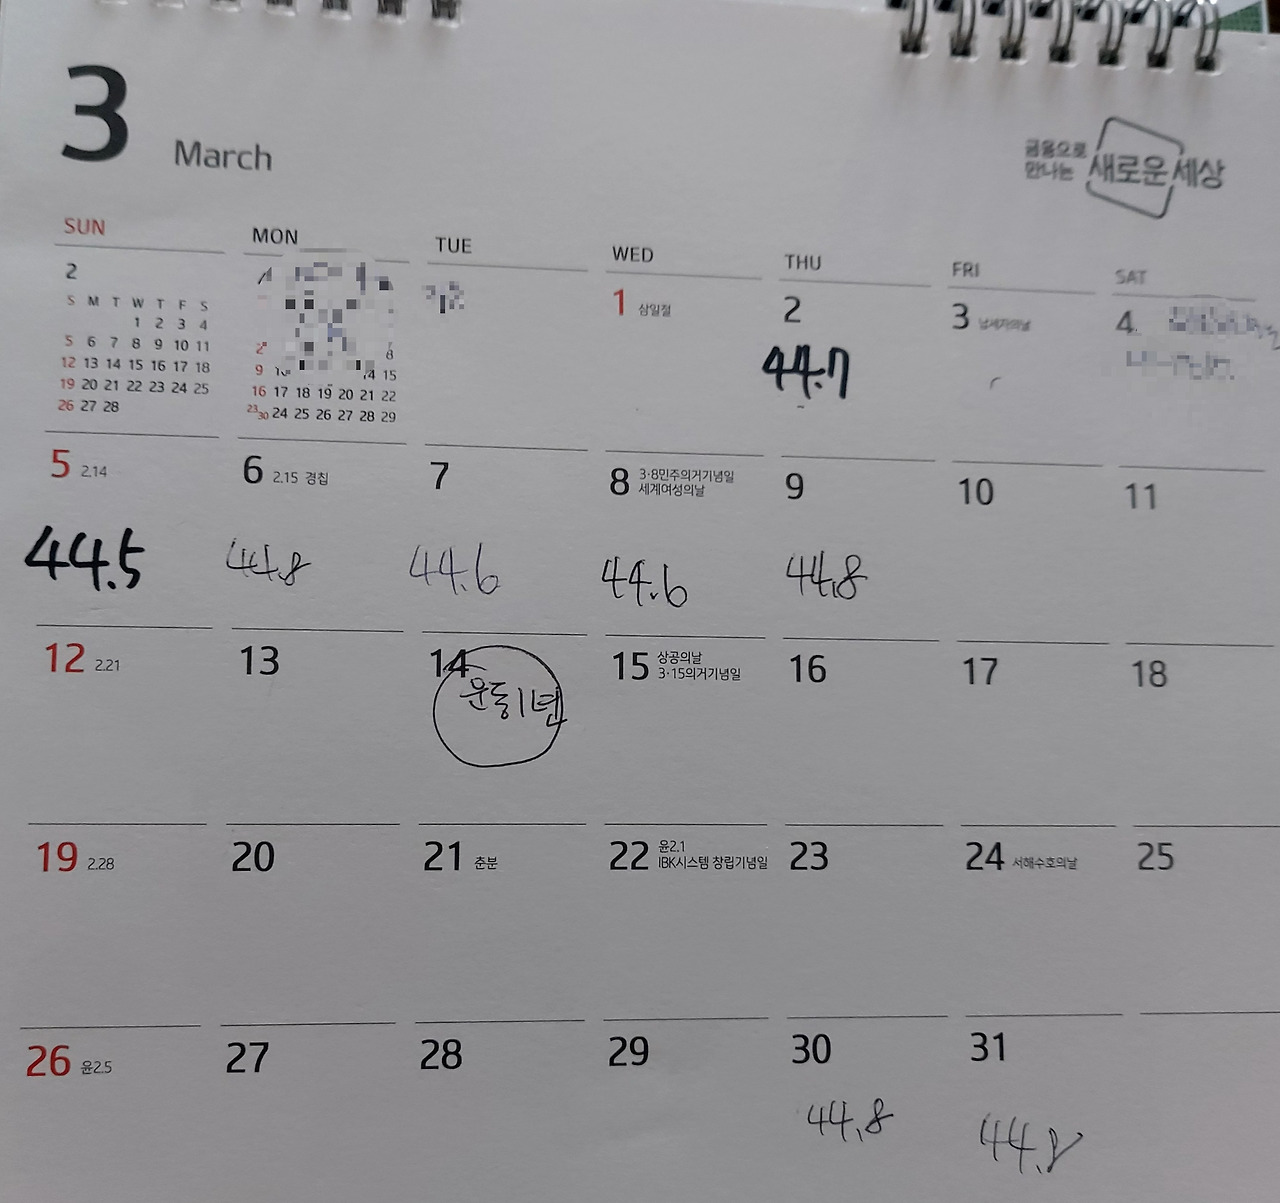 3 March
금융으로
만나는 새로운 세상
SUN MON TUE WED THU FRI SAT
2
S M T W T F S
1 2 3 4
5 6 7 8 9 10 11
12 13 14 15 16 17 18
19 20 21 22 23 24 25
26 27 28
8
9 14 15
16 17 18 19 20 21 22
23 30 24 25 26 27 28 29
1 삼일절
2
44.7
3 납세자의날
4
5 2.14
44.5
6 2.15 경칩
44.8
7
44.6
8 3·8민주의거기념일
세계여성의날
44.6
9
44.8
10
11
12 2.21
13
14
운동1년
15 상공의날
3·15의거기념일
16
17
18
19 2.28
20
21 춘분
22 윤2.1
IBK시스템 창립기념일
23
24 서해수호의날
25
26 윤2.5
27
28
29
30
44.8
31
44.8